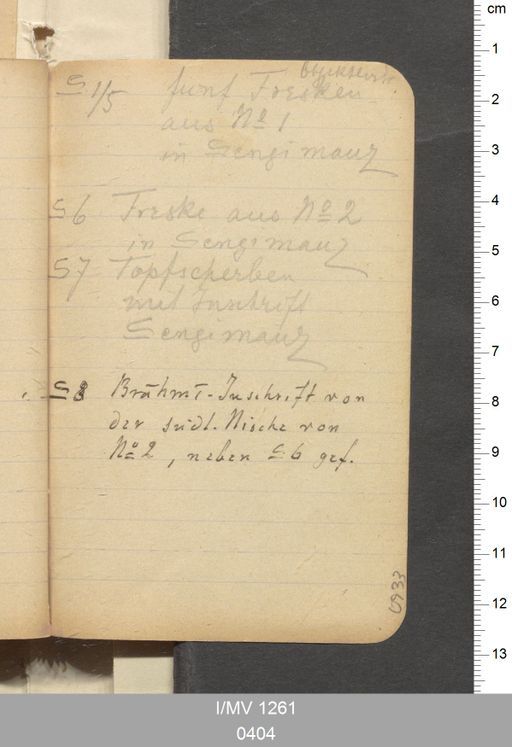 S 1/5 fünf Fresken
aus No 1
in Sengimauz
S 6 Freske aus No 2
in Sengimauz
S 7 Topfscherben
mit Inschrift
Sengimauz
S 8 Brāhmī-Inschrift von
der südl. Nische von
No 2, neben S 6 gef.
0933
cm
1
2
3
4
5
6
7
8
9
10
11
12
13
I/MV 1261
0404